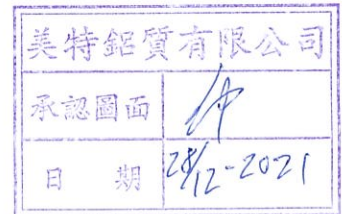 美特鋁質有限公司
承認圖面
日期 28/12-2021